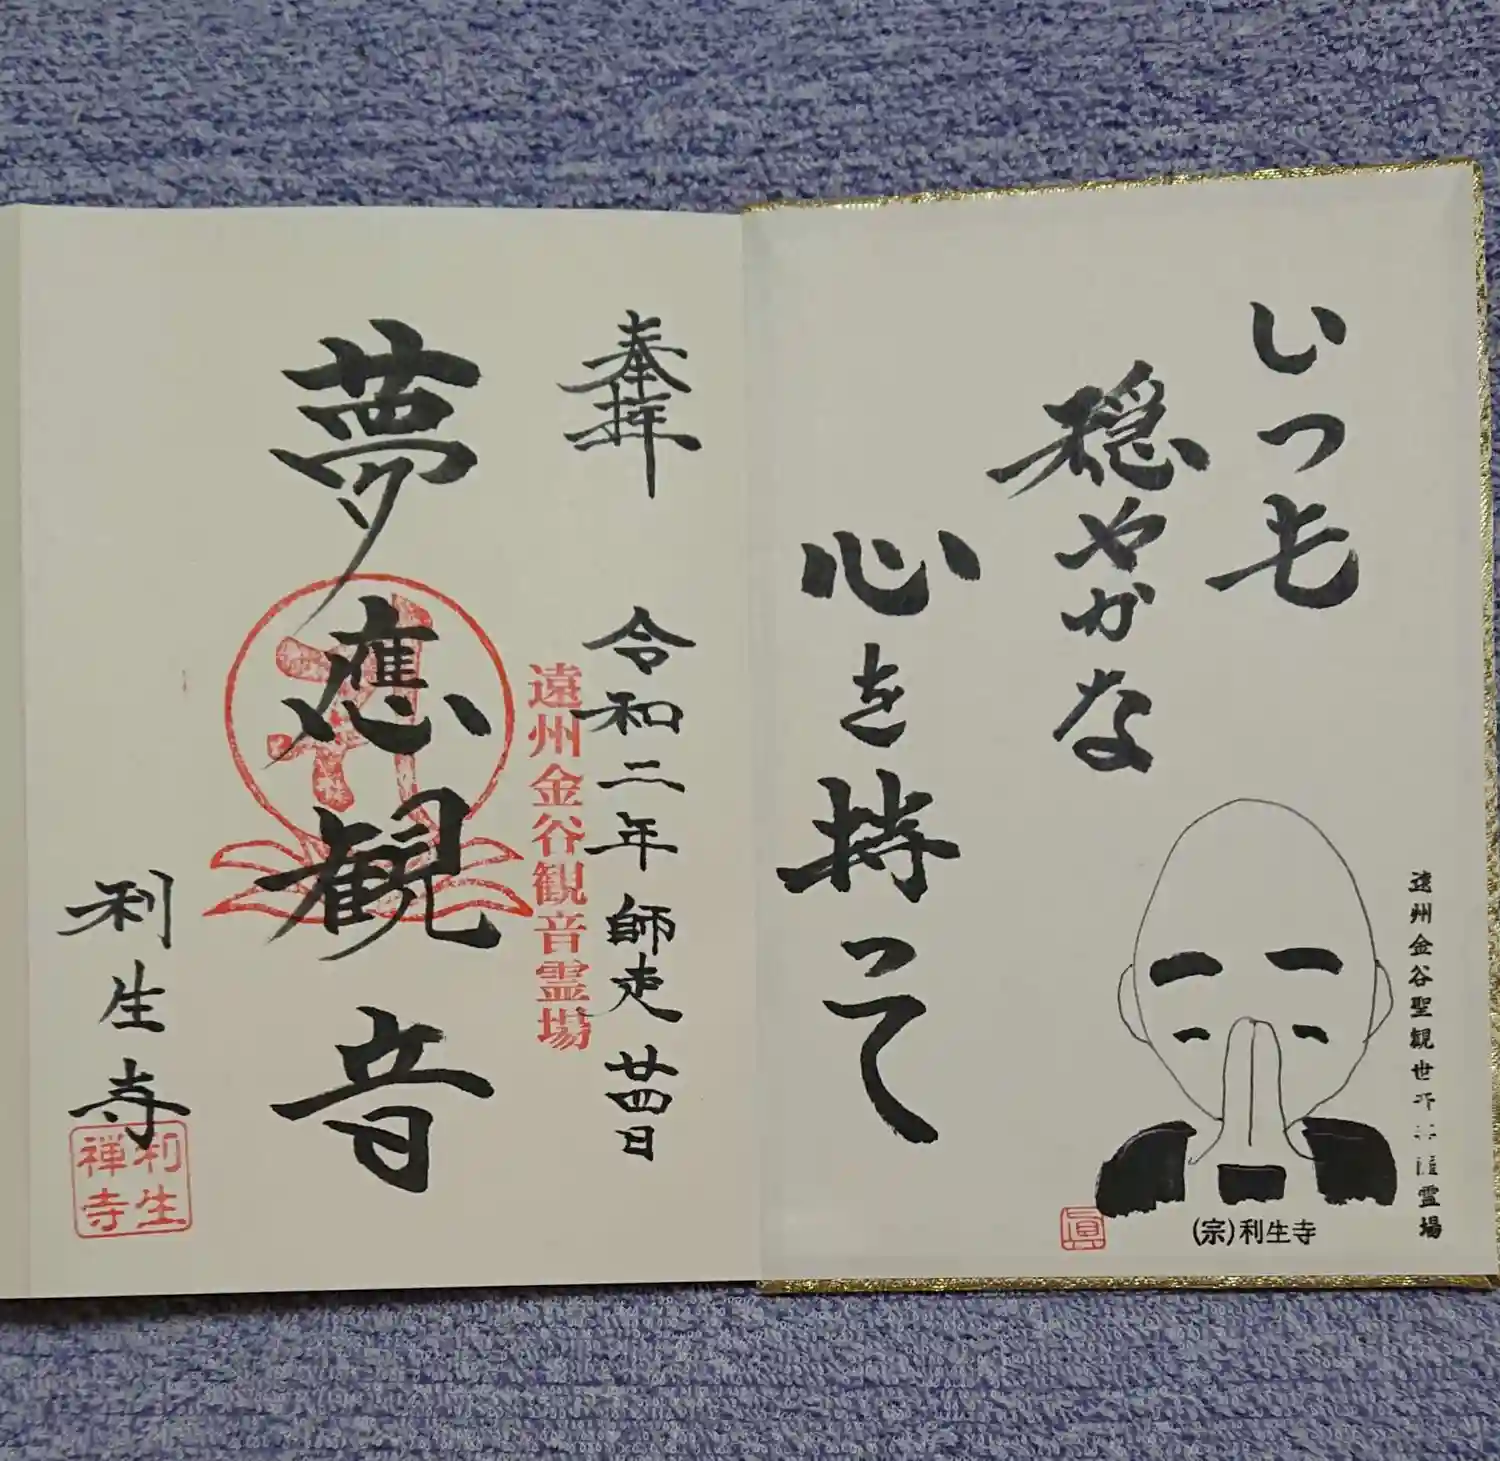 いつも
穏やかな
心を持って
遠州金谷聖観世音菩薩霊場
(宗)利生寺
眞
奉拝
令和二年師走廿四日
遠州金谷観音霊場
夢應観音
利生寺
利生
禅寺